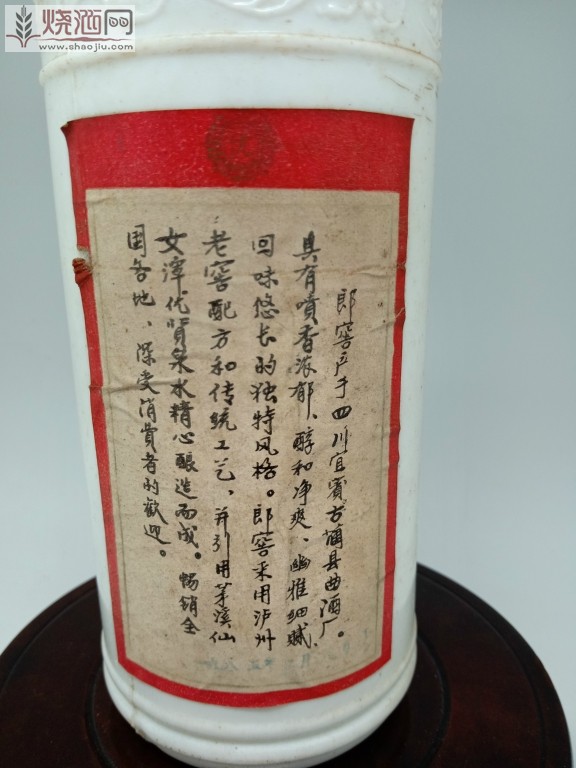 烧酒网
www.shaojiu.com
郎窖产于四川宜賓古藺县曲酒厂。
具有噴香浓郁、醇和净爽、幽雅细腻、
回味悠长的独特风格。郎窖采用泸州
老窖配方和传统工艺、并引用茅溪仙
女潭优質泉水精心酿造而成。畅销全
国各地、深受消費者的歡迎。